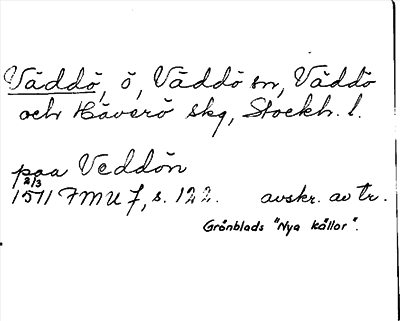 Väddö, ö, Väddö sn, Väddö
och Häverö skg, Stockh. l.
paa Veddön
2/3
1511 FMU 7, s. 122. avskr. av tr.
Grönblads "Nya källor".